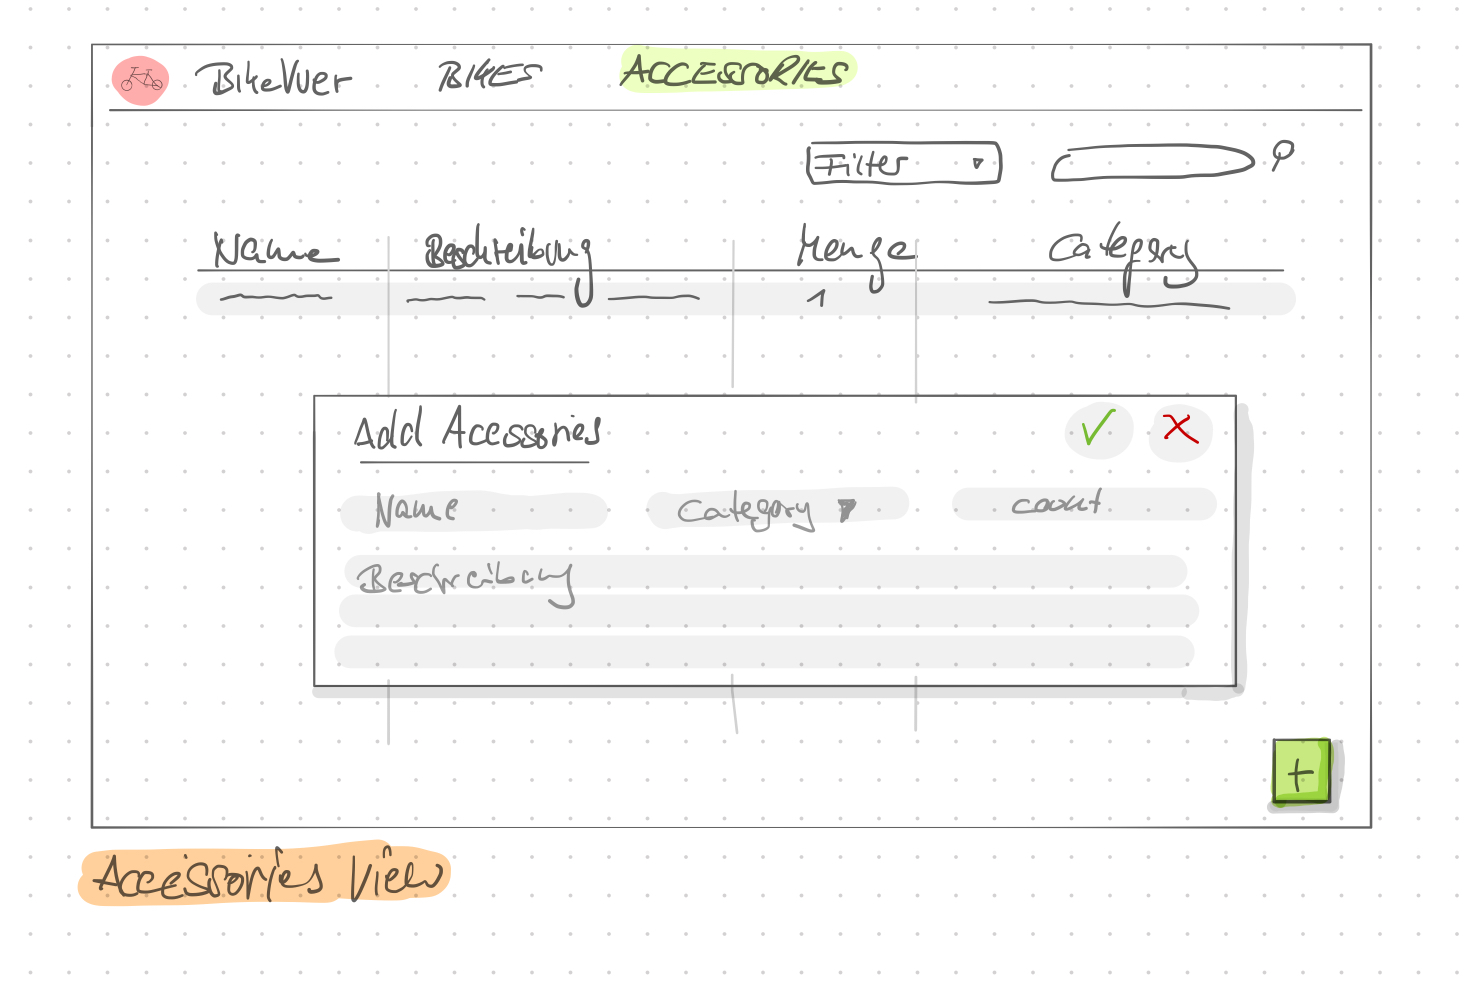 BikeVuer BIKES ACCESSORIES
Filter
Name Beschreibung Menge Category
1
Add Accessories
Name Category count
Beschreibung
+
Accessories View